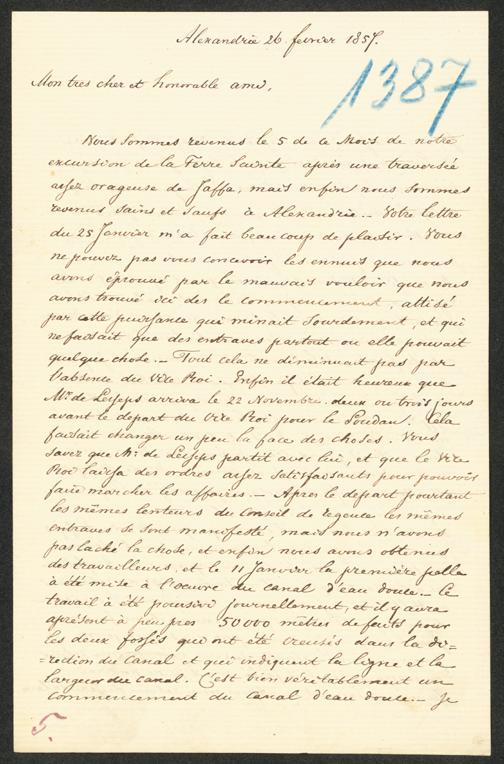 Alexandrie 26 fevrier 1857.
1387
Mon tres cher et honorable ami,
Nous sommes revenus le 5 de ce Mois de notre
excursion de la Terre Sainte après une traversée
assez orageuse de Jaffa, mais enfin nous sommes
revenus sains et saufs à Alexandrie. – Votre lettre
du 25 Janvier m'a fait beaucoup de plaisir. Vous
ne pouvez pas vous concevoir les ennuis que nous
avons éprouvé par le mauvais vouloir que nous
avons trouvé ici des le commencement, attisé
par cette puissance qui minait sourdement, et qui
ne faisait que des entraves partout ou elle pouvait
quelque chose. – Tout cela ne diminuait pas par
l'absence du Vice Roi. Enfin il était heureux que
Mr. de Lesseps arriva le 22 Novembre. deux ou trois jours
avant le depart du Vice Roi pour le Soudan. Cela
faisait changer un peu la face des choses. Vous
savez que Mr. de Lesseps partit avec lui, et que le Vice
Roi laissa des ordres assez satisfaisants pour pouvoir
faire marcher les affaires. – Apres le départ pourtant
les mêmes lenteurs du Conseil de regence les mêmes
entraves se sont manifesté, mais nous n'avons
pas laché la chose, et enfin nous avons obtenus
des travailleurs, et le 11 Janvier la première
à été mise à l'oeuvre du canal d'eau douce. – le
travail à été poursivi journellement, et il y aura
aprésent à peu pres 50000 mètres de faits pour
les deux fossés qui ont été creusés dans la di=
=rection du canal et qui indiquent la ligne et la
largeur du canal. C'est bien véritablement un
commencement du canal d'eau douce. – Je
5.